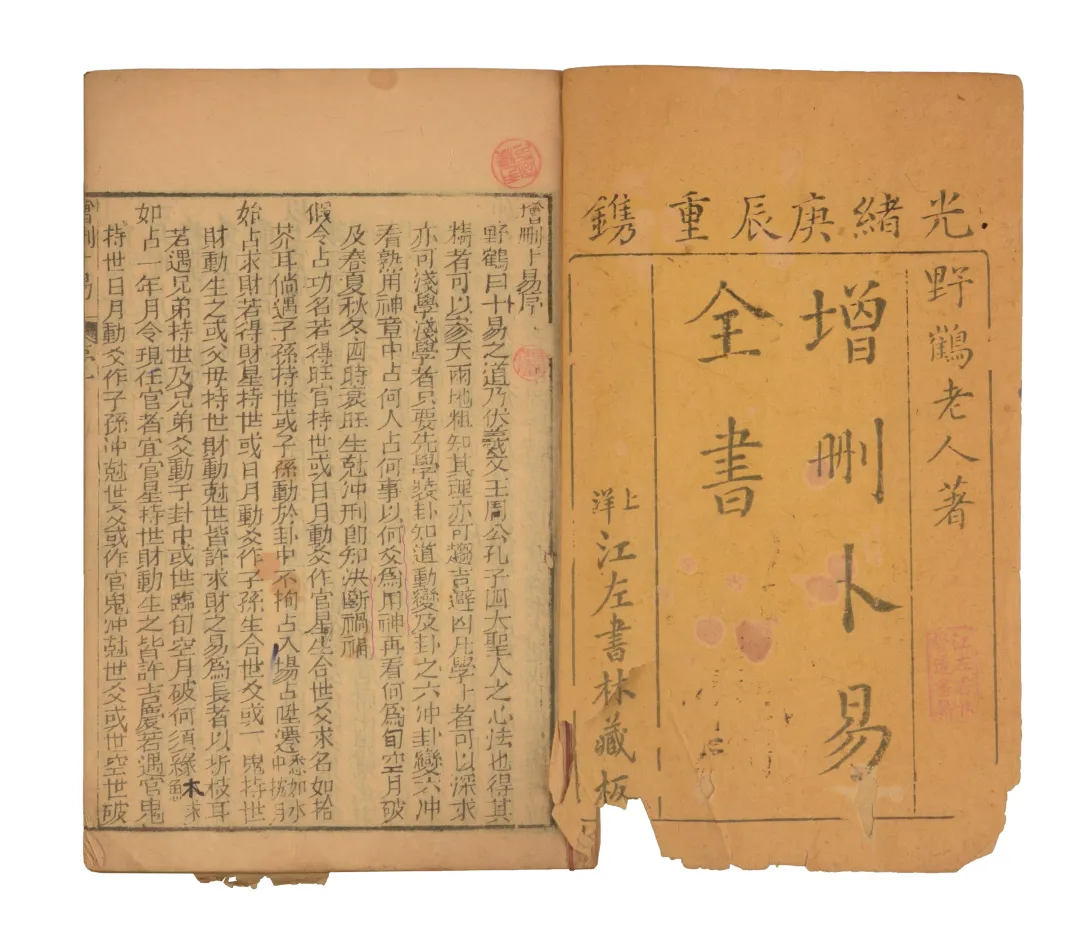 光緒庚辰重鐫
野鶴老人著
增刪卜易
全書
上洋江左書林藏板
增刪卜易序
野鶴曰卜易之道乃伏羲文王周公孔子四大聖人之心法也得其
精者可以叅天兩地粗知其理亦可趨吉避凶凡學卜者可以深求
亦可淺學淺學者只要先學裝卦知道動變及卦之六冲卦變六冲
看熟用神章中占何人占何事以何爻爲用神再看何爲旬空月破
及春夏秋冬四時衰旺生尅冲刑卽知决斷禍福
假令占功名若得旺官持世或日月動爻作官星生合世爻求名如拾
芥耳倘遇子孫持世或子孫動於卦中不拘占入場占陞遷
始占求財若得財星持世或日月動爻作子孫生合世爻或一鬼持世
財動生之或父母持世財動尅世皆許求財之易爲長者以折枝耳
若遇兄弟持世及兄弟爻動于卦中或世臨旬空月破何須緣木求
如占一年月令現任官者宜官星持世財動生之皆許吉慶若遇官鬼
持世日月動爻作子孫冲尅世爻或作官鬼冲尅世爻或世空世破